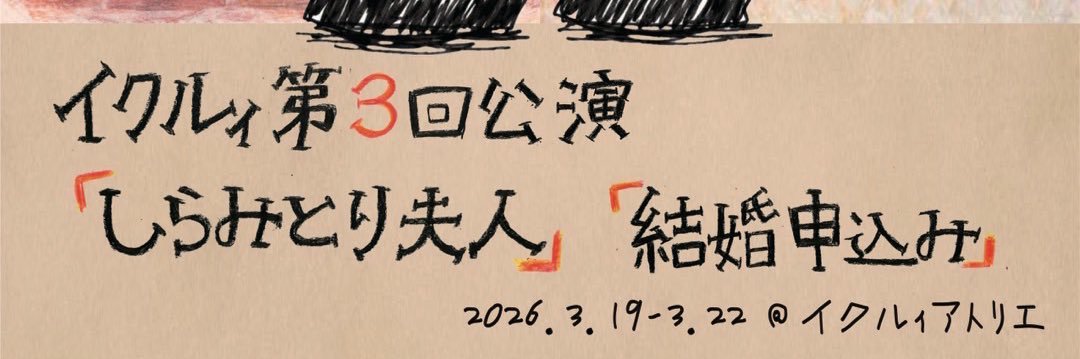 イクルィ第3回公演
「しらみとり夫人」「結婚申込み」
2026.3.19-3.22@イクルィアトリエ